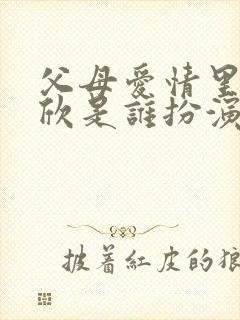 父母愛情里
欣是誰扮演
披着紅皮的狼